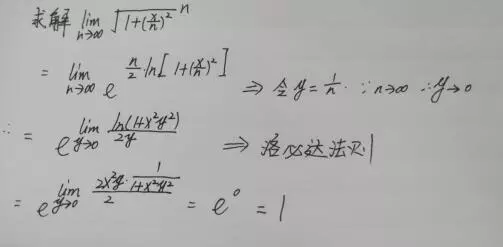 求解 lim_{n→∞} √(1+(x/n)²)^n
= lim_{n→∞} e^{n/2·ln[1+(x/n)²]} ⇒ 令 y=1/n ∵n→∞ ∴y→0
∴ = e^{lim_{y→0} ln(1+x²y²)/(2y)} ⇒ 洛必达法则
= e^{lim_{y→0} (2x²y·1/(1+x²y²))/2} = e⁰ = 1